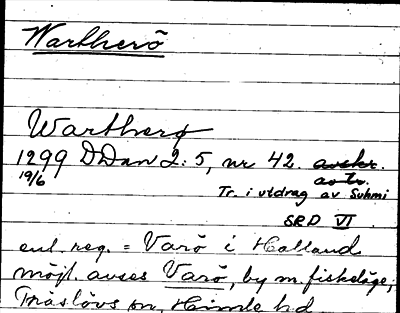 Wartherö
Wartherø
1299 DDan 2:5, nr 42. avskr.
19/6 av tr.
Tr. i utdrag av Suhmi
SRD VI.
enl. reg. = Varö i Halland
möjl. avses Varö, by m. fiskeläge,
Träslövs sn, Himle hd